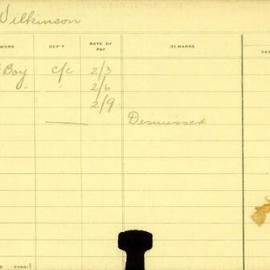 Wilkinson
WORK DEP'T RATE OF PAY REMARKS
Boy c/c 2/3
" 2/6
2/9
Dismissed